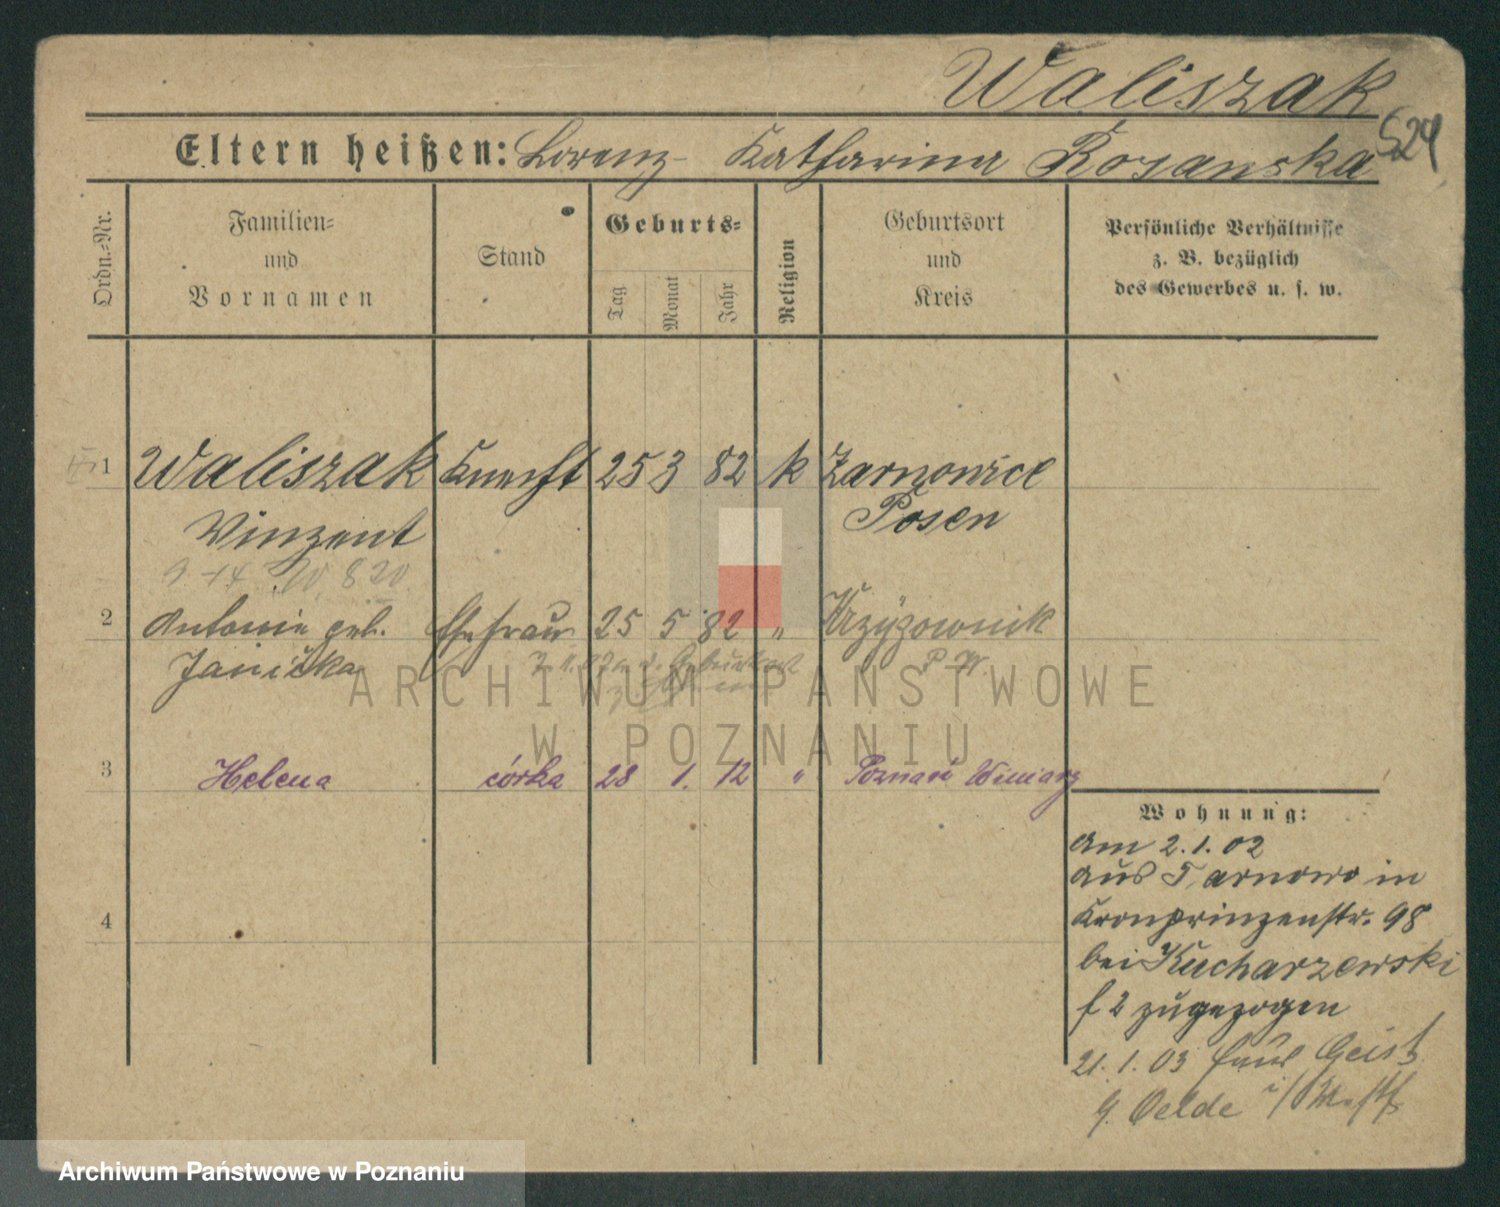 Waliszak
524
Eltern heißen: Lorenz Katharina Rozanska
Ordn.-Nr.
Familien-
und
Vornamen
Stand
Geburts-
Tag
Monat
Jahr
Religion
Geburtsort
und
Kreis
Persönliche Verhältnisse
z. B. bezüglich
des Gewerbes u. s. w.
1 Waliszak Knecht 25 3 82 k
Winzent Posen
2 Antonie geb. Ehefrau 25 5 82 " Krzyżownik
Janicka P. W.
ARCHIWUM PAŃSTWOWE
W POZNANIU
3 Helena córka 28 1. 12 " Poznań Winiary
4
Wohnung:
am 2.1.02
aus Tarnowo in
Kronprinzenstr. 98
bei Kucharzewski
f 2 zugezogen
21.1.03
Oelde i/Westf
Archiwum Państwowe w Poznaniu